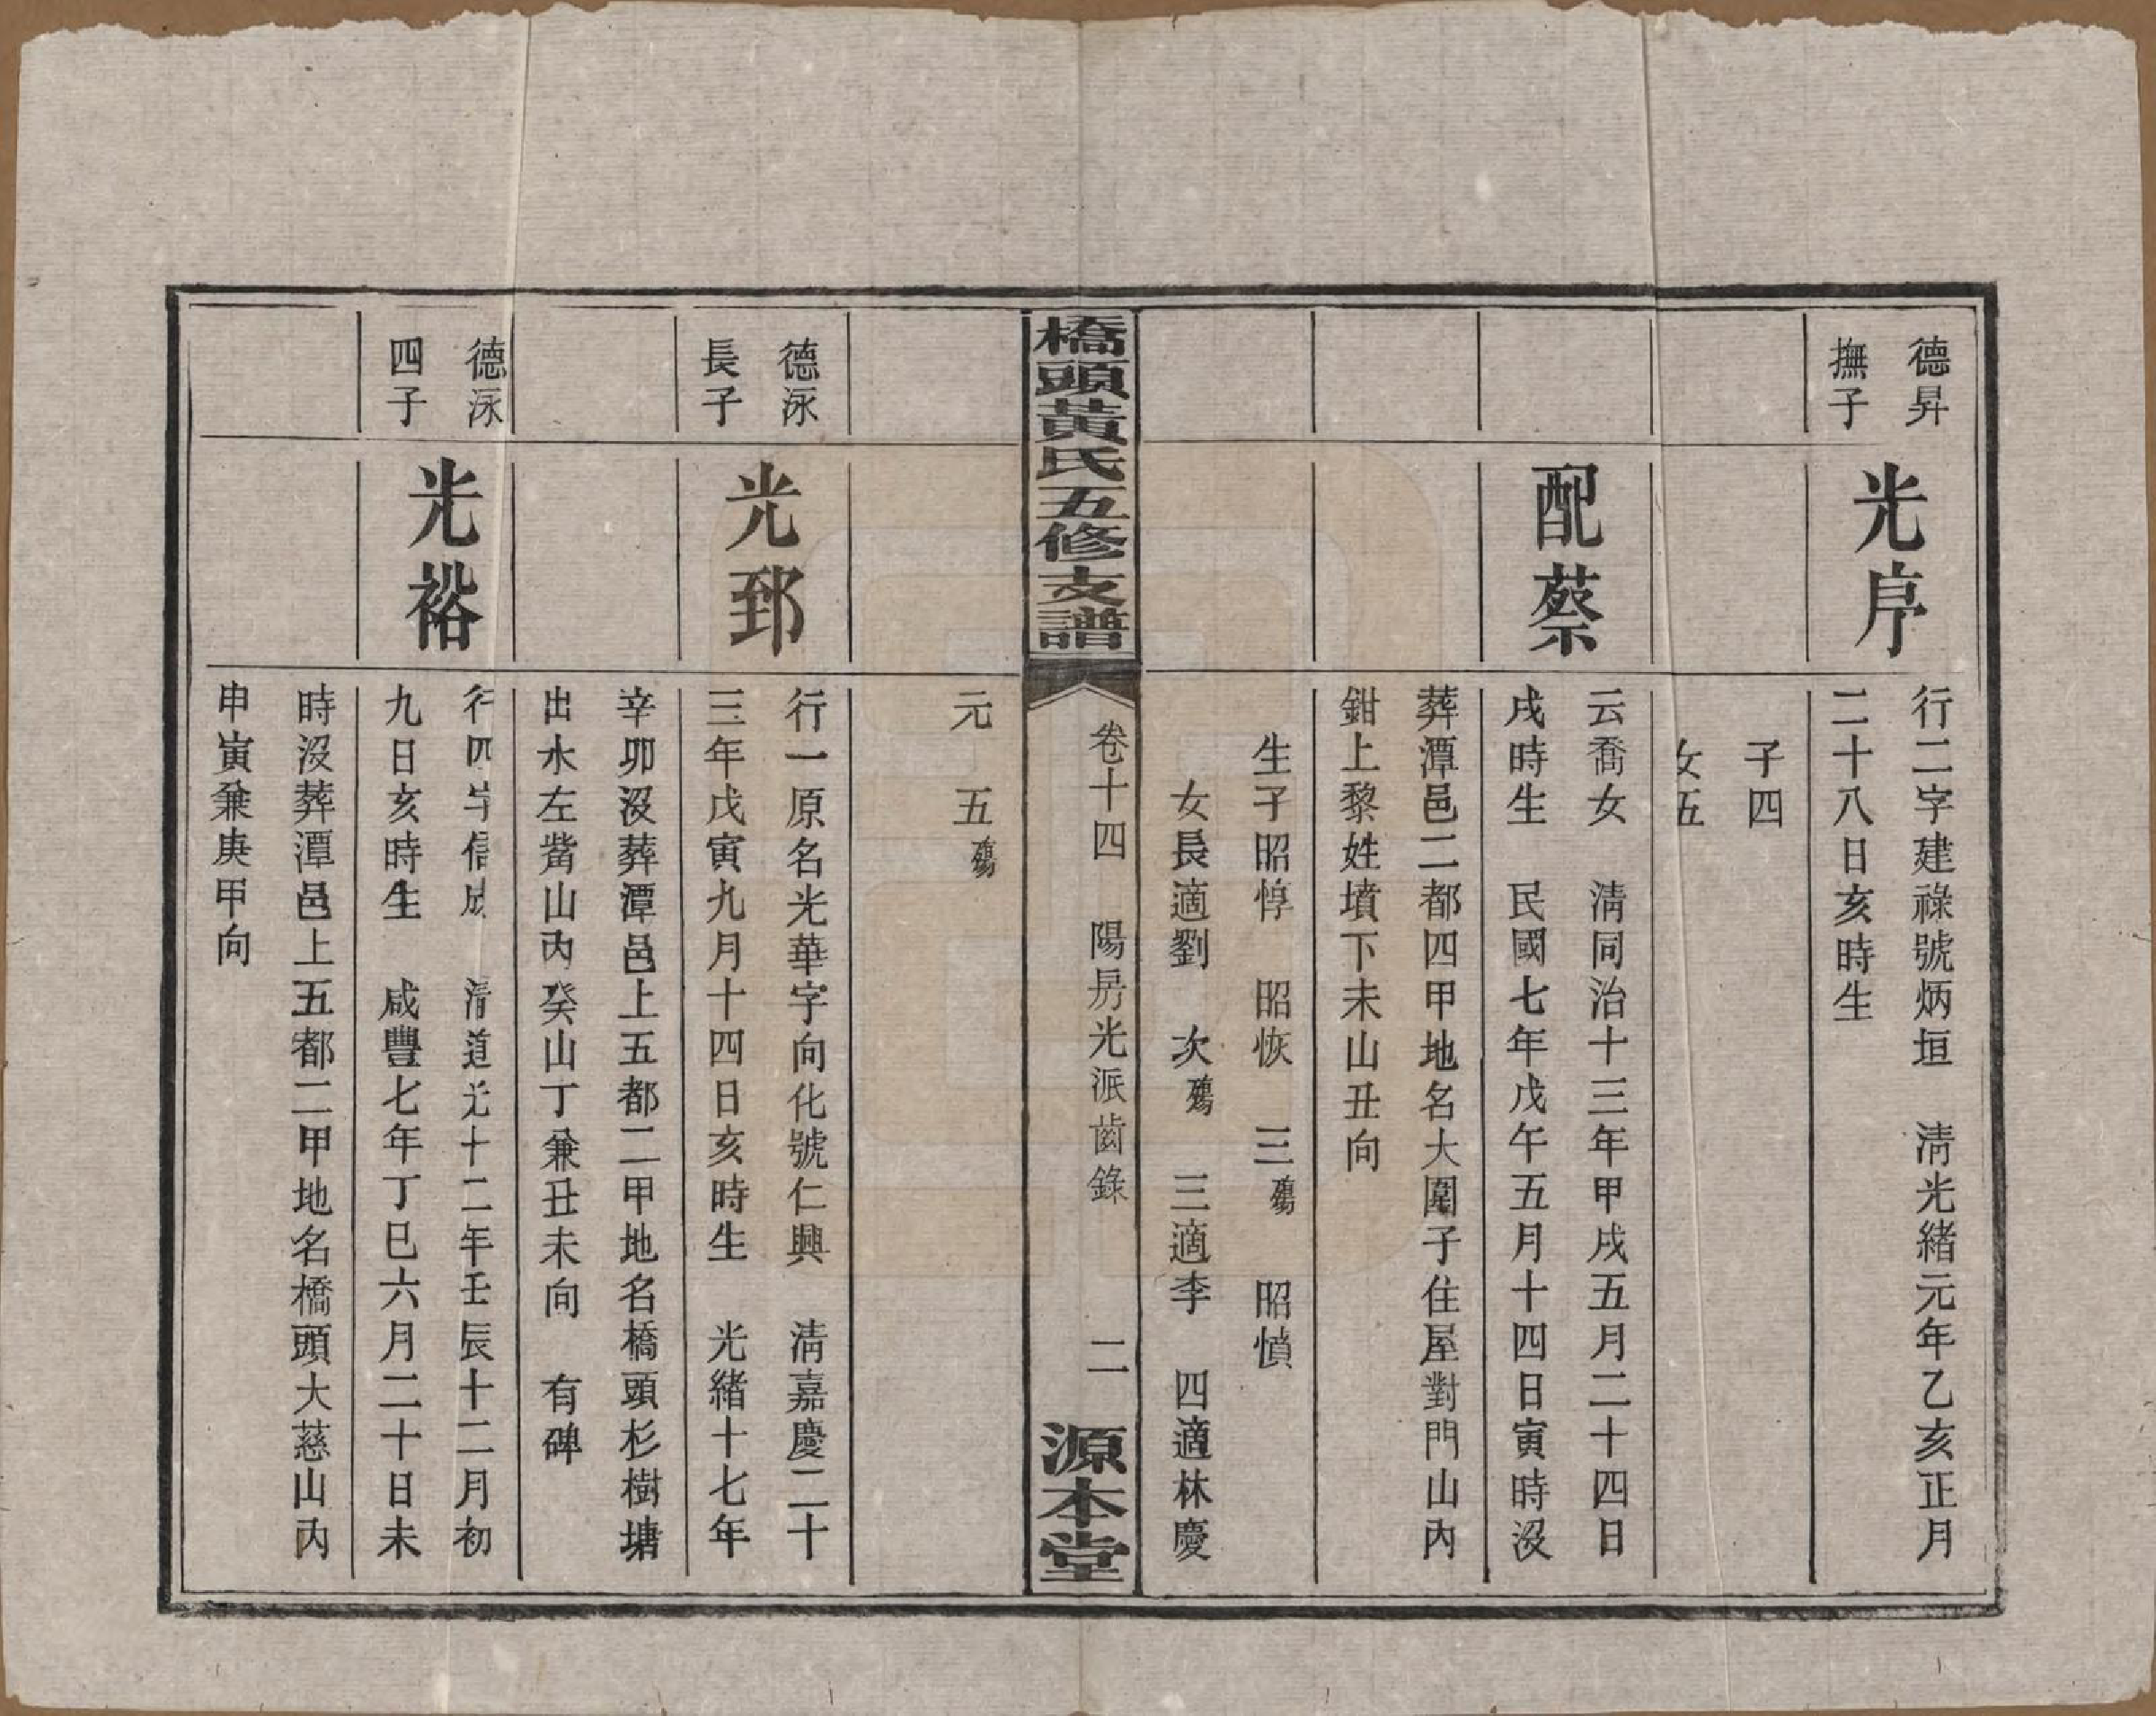 德昇
撫子
光序
行二字建祿號炳垣　淸光緒元年乙亥正月
二十八日亥時生
子四
女五
配蔡
云喬女　淸同治十三年甲戌五月二十四日
戌時生　民國七年戊午五月十四日寅時沒
葬潭邑二都四甲地名大圍子住屋對門山內
鉗上黎姓墳下未山丑向
生子昭惇　昭恢　三殤　昭憤
女長適劉　次殤　三適李　四適林慶
橋頭黃氏五修支譜
卷十四　陽房光派齒錄　二
源本堂
元　五殤
德泳
長子
光郅
行一原名光華字向化號仁興　淸嘉慶二十
三年戊寅九月十四日亥時生　光緒十七年
辛卯沒葬潭邑上五都二甲地名橋頭杉樹塘
出水左觜山內癸山丁兼丑未向　有碑
德泳
四子
光裕
行四字信成　淸道光十二年壬辰十二月初
九日亥時生　咸豐七年丁巳六月二十日未
時沒葬潭邑上五都二甲地名橋頭大慈山內
申寅兼庚甲向